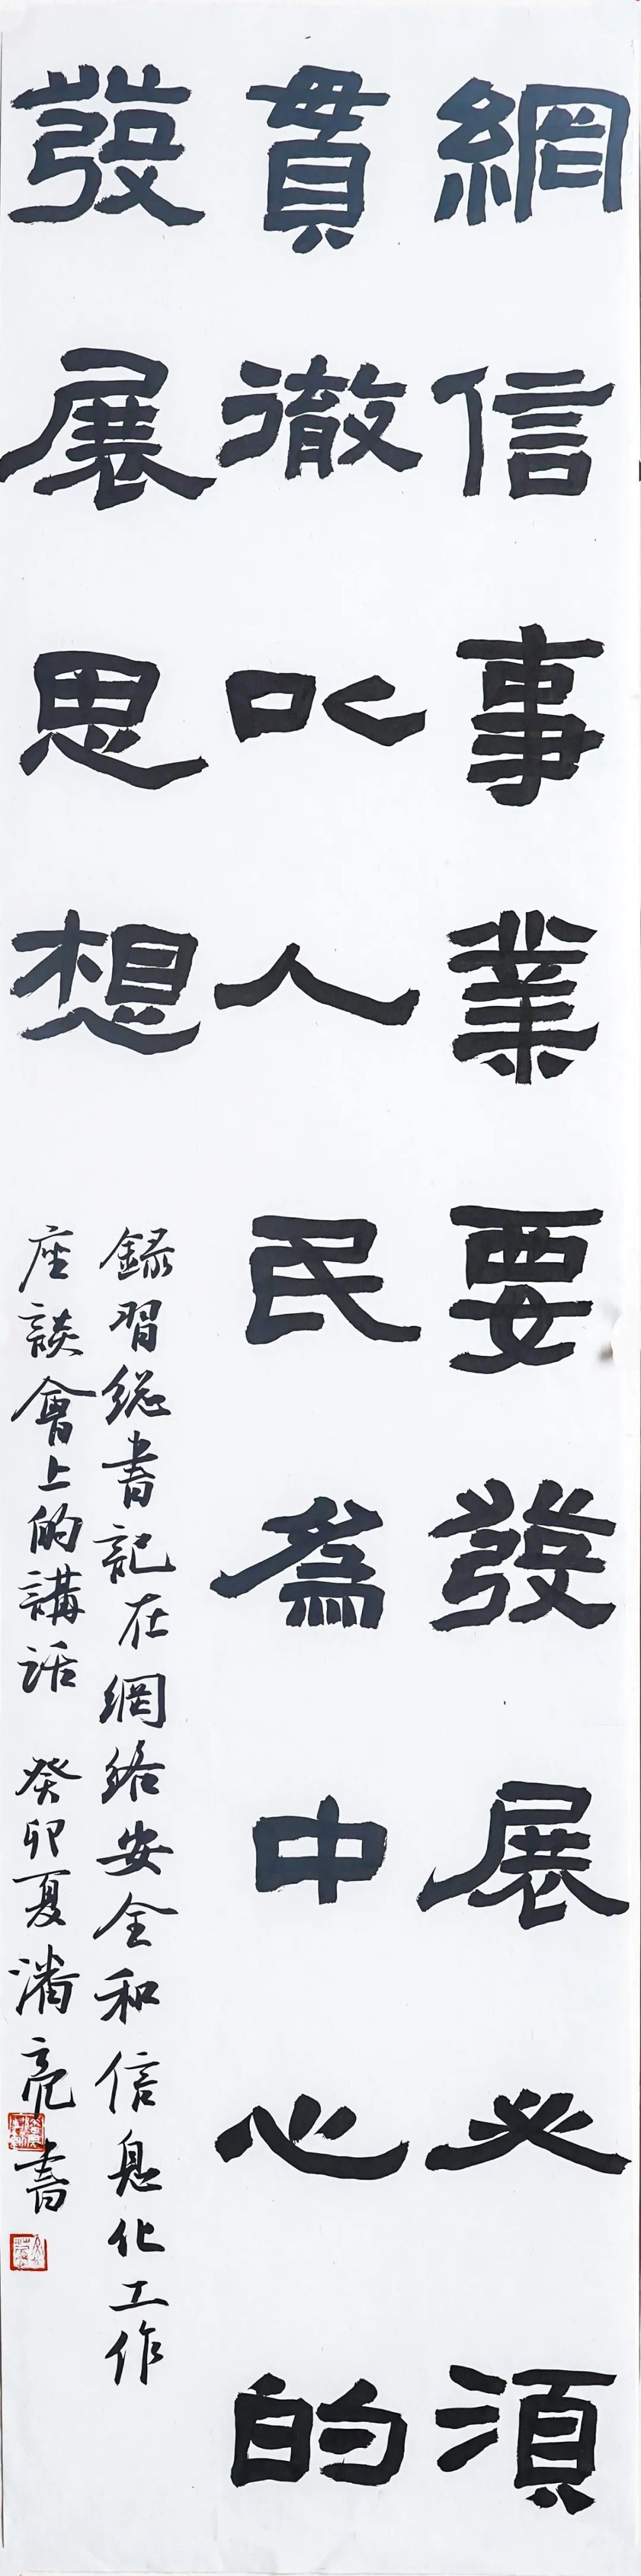 網信事業要發展必須
貫徹以人民為中心的
發展思想
錄習總書記在網絡安全和信息化工作
座談會上的講話 癸卯夏潘亮書